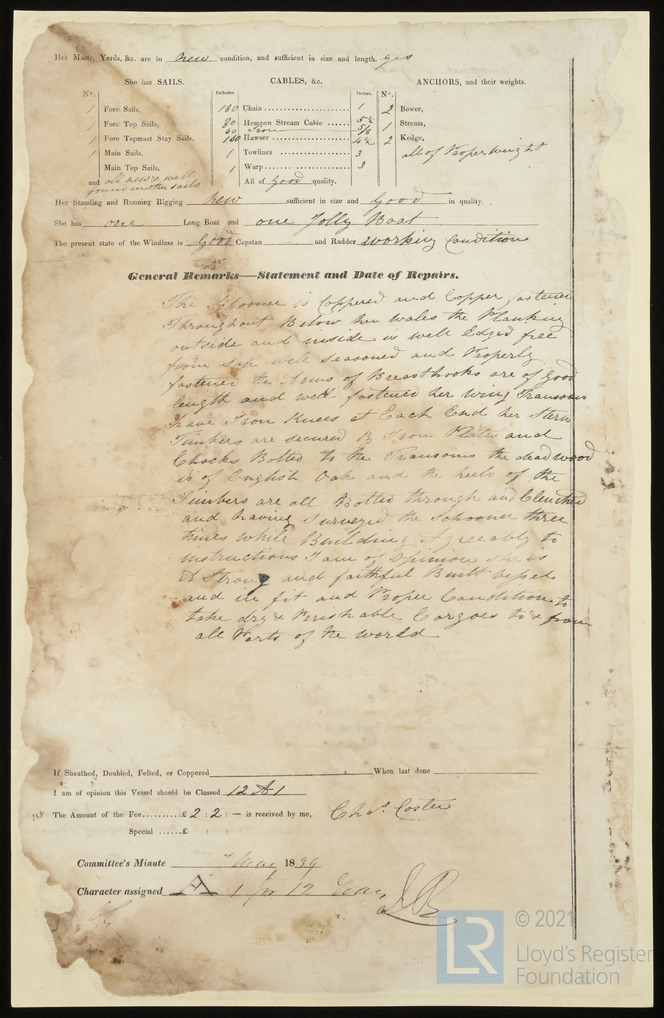 Her Masts, Yards, &c. are in new condition, and sufficient in size and length. yes
She has SAILS. CABLES, &c. ANCHORS, and their weights.
N°. Fathoms. Inches. N°.
1 Fore Sails, 180 Chain 1 2 Bower,
1 Fore Top Sails, 80 Hempen Stream Cable 1 Stream,
60 Iron
1 Fore Topmast Stay Sails, Hawser 4½ 2 Kedge,
1 Main Sails, 1 Towlines 3 all of Proper weight
Main Top Sails, 1 Warp 3
and all new & well All of Good quality.
found in other sails
Her Standing and Running Rigging new sufficient in size and Good in quality.
She has one Long Boat and one Jolly Boat
The present state of the Windlass is Good Capstan and Rudder working Condition
General Remarks—Statement and Date of Repairs.
The Schooner is Coppered and Copper fastened
Throughout Below her wales the Planking
outside and inside is well Edged free
from sap well seasoned and Properly
fastened the Arms of Breasthooks are of good
length and well fastened her wing Transoms
have Iron Knees at Each End her Stern
Timbers are secured By Iron Plates and
Chocks Bolted to the Transoms the dead wood
is of English Oak and the heels of the
Timbers are all Bolted through and Clenched
and having Surveyed the Schooner three
times while Building Agreeably to
instructions I am of Opinion she is
A Strong and faithful Built vessel
and in fit and Proper Condition to
take dry & Perishable Cargoes to & from
all Parts of the world
If Sheathed, Doubled, Felted, or Coppered When last done
I am of opinion this Vessel should be Classed 12 A1
The Amount of the Fee £ 2 : 2 : — is received by me, Chas. Coster
Special £ : :
Committee's Minute May 1839
Character assigned A 1 for 12 Years
© 2021
LR Lloyd's Register
Foundation